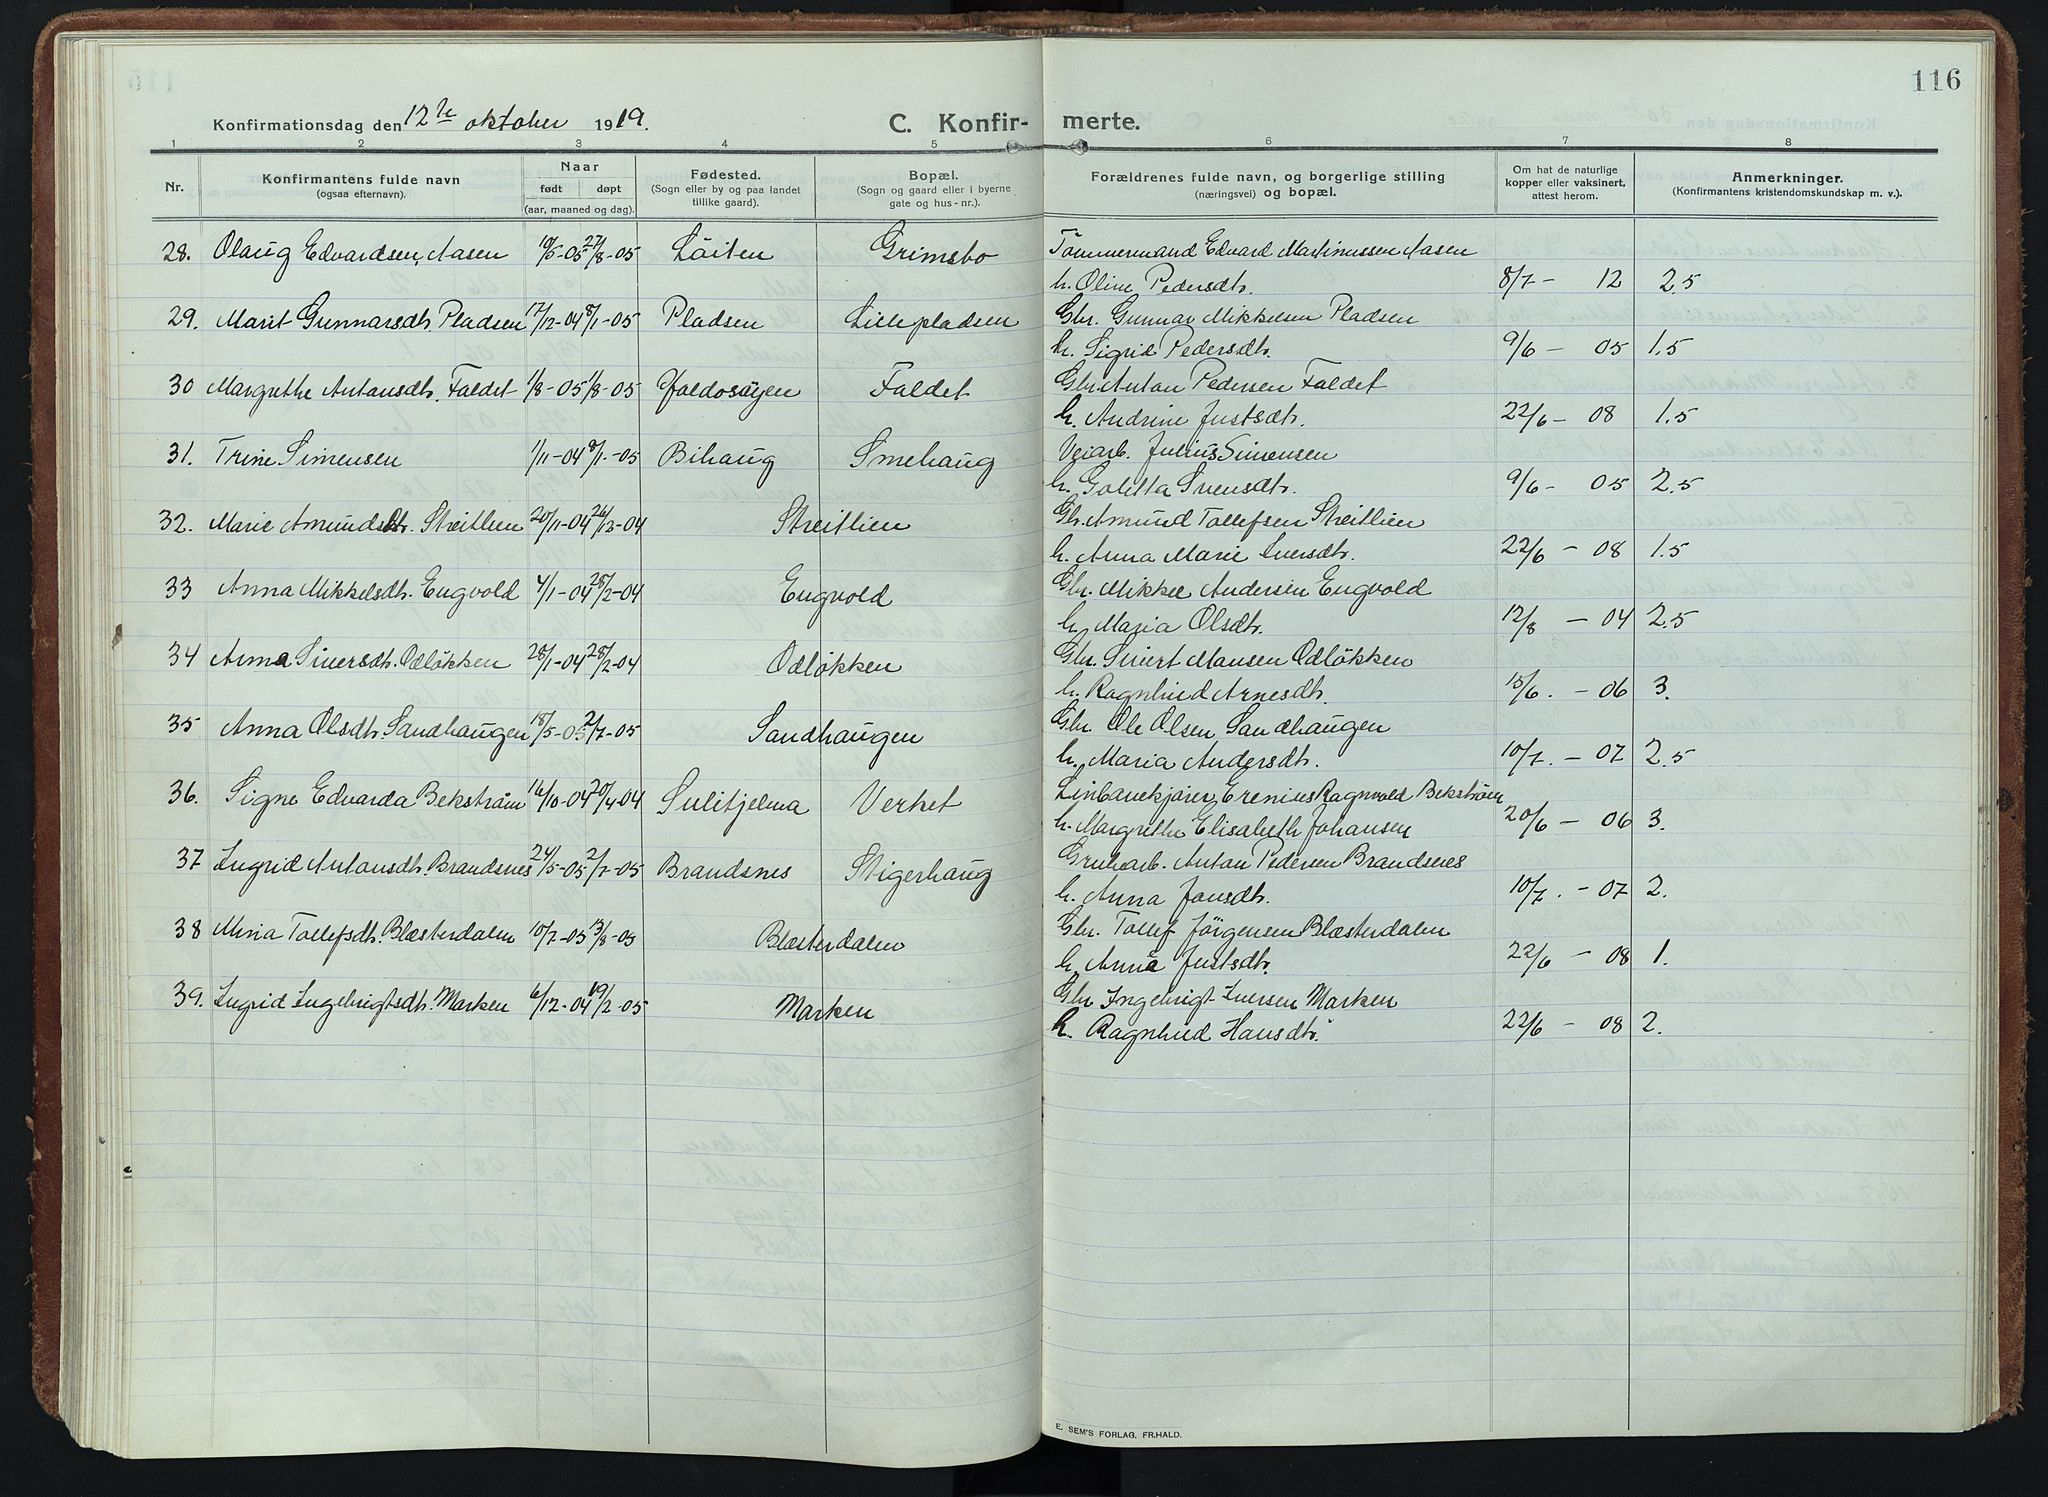 116
Konfirmationsdag den 12te oktober 1919.
C. Konfir- merte.
1 2 3 4 5 6 7 8
Nr.
Konfirmantens fulde navn
(ogsaa efternavn).
Naar
født døpt
(aar, maaned og dag).
Fødested.
(Sogn eller by og paa landet
tillike gaard).
Bopæl.
(Sogn og gaard eller i byerne
gate og hus-nr.).
Forældrenes fulde navn, og borgerlige stilling
(næringsvei) og bopæl.
Om hat de naturlige
kopper eller vaksinert,
attest herom.
Anmerkninger.
(Konfirmantens kristendomskundskap m. v.).
28. Olaug Edvardsen, Aasen 19/5-05 27/8-05 Löiten Grimsbo Tömmermand Edvard Martinussen Aasen
h. Oline Pedersdtr. 8/7 - 12 2.5
29. Marit Gunnarsdtr. Pladsen 17/12-04 8/1-05 Pladsen Lillepladsen Gbr. Gunnar Mikkelsen Pladsen
h. Sigrid Pedersdtr. 9/6 - 05 1.5
30 Margrethe Antonsdtr. Faldet 1/8-05 1/8-05 Foldosöyen Faldet Gbr. Anton Pedersen Faldet
h. Andrine Justsdtr. 22/6 - 08 1.5
31. Trine Simensen 1/11-04 8/1-05 Bihaug Smehaug Veiarb. Julius Simensen
h. Goletta Svensdtr. 9/6 - 05 2.5
32. Marie Amundsdtr. Streitlien 20/11-04 26/12-04 Streitlien Gbr. Amund Tollefsen Streitlien
h. Anna Marie Iversdtr. 22/6 - 08 1.5
33 Anna Mikkelsdtr. Engvold 4/1-04 28/2-04 Engvold Gbr. Mikkel Andersen Engvold
h. Maria Olsdtr. 12/8 - 04 2.5
34 Anna Siversdtr. Odlökken 28/1-04 28/2-04 Odlökken Gbr. Sivert Hansen Odlökken
h. Ragnhild Arnesdtr. 15/6. - 06 3.
35 Anna Olsdtr. Sandhaugen 18/5-05 2/7-05 Sandhaugen Gbr. Ole Olsen Sandhaugen
h. Maria Andersdtr. 10/7. - 07 2.5
36. Signe Edvarda Bekström 16/10-04 20/4-04 Sulitjelma Verket Linbanekjörer Erenius Ragnvold Bekström
h. Margrethe Elisabeth Johansen 20/6 - 06 3.
37 Ingrid Antonsdtr. Brandsnes 24/5-05 2/7-05 Brandsnes Stigerhaug Grubarb. Anton Pedersen Brandsnes
h. Anna Jonsdtr. 10/7. - 07 2.
38 Mina Tollefsdtr. Blæsterdalen 10/7-05 13/8-05 Blæsterdalen Gbr. Tollef Jörgensen Blæsterdalen
h. Anna Justsdtr. 22/6 - 08 1.
39. Ingrid Ingebrigtsdtr. Marken 6/12-04 19/2-05 Marken Gbr Ingebrigt Iversen Marken
h. Ragnhild Hansdtr. 22/6 - 08 2.
E. SEM'S FORLAG, FR.HALD.